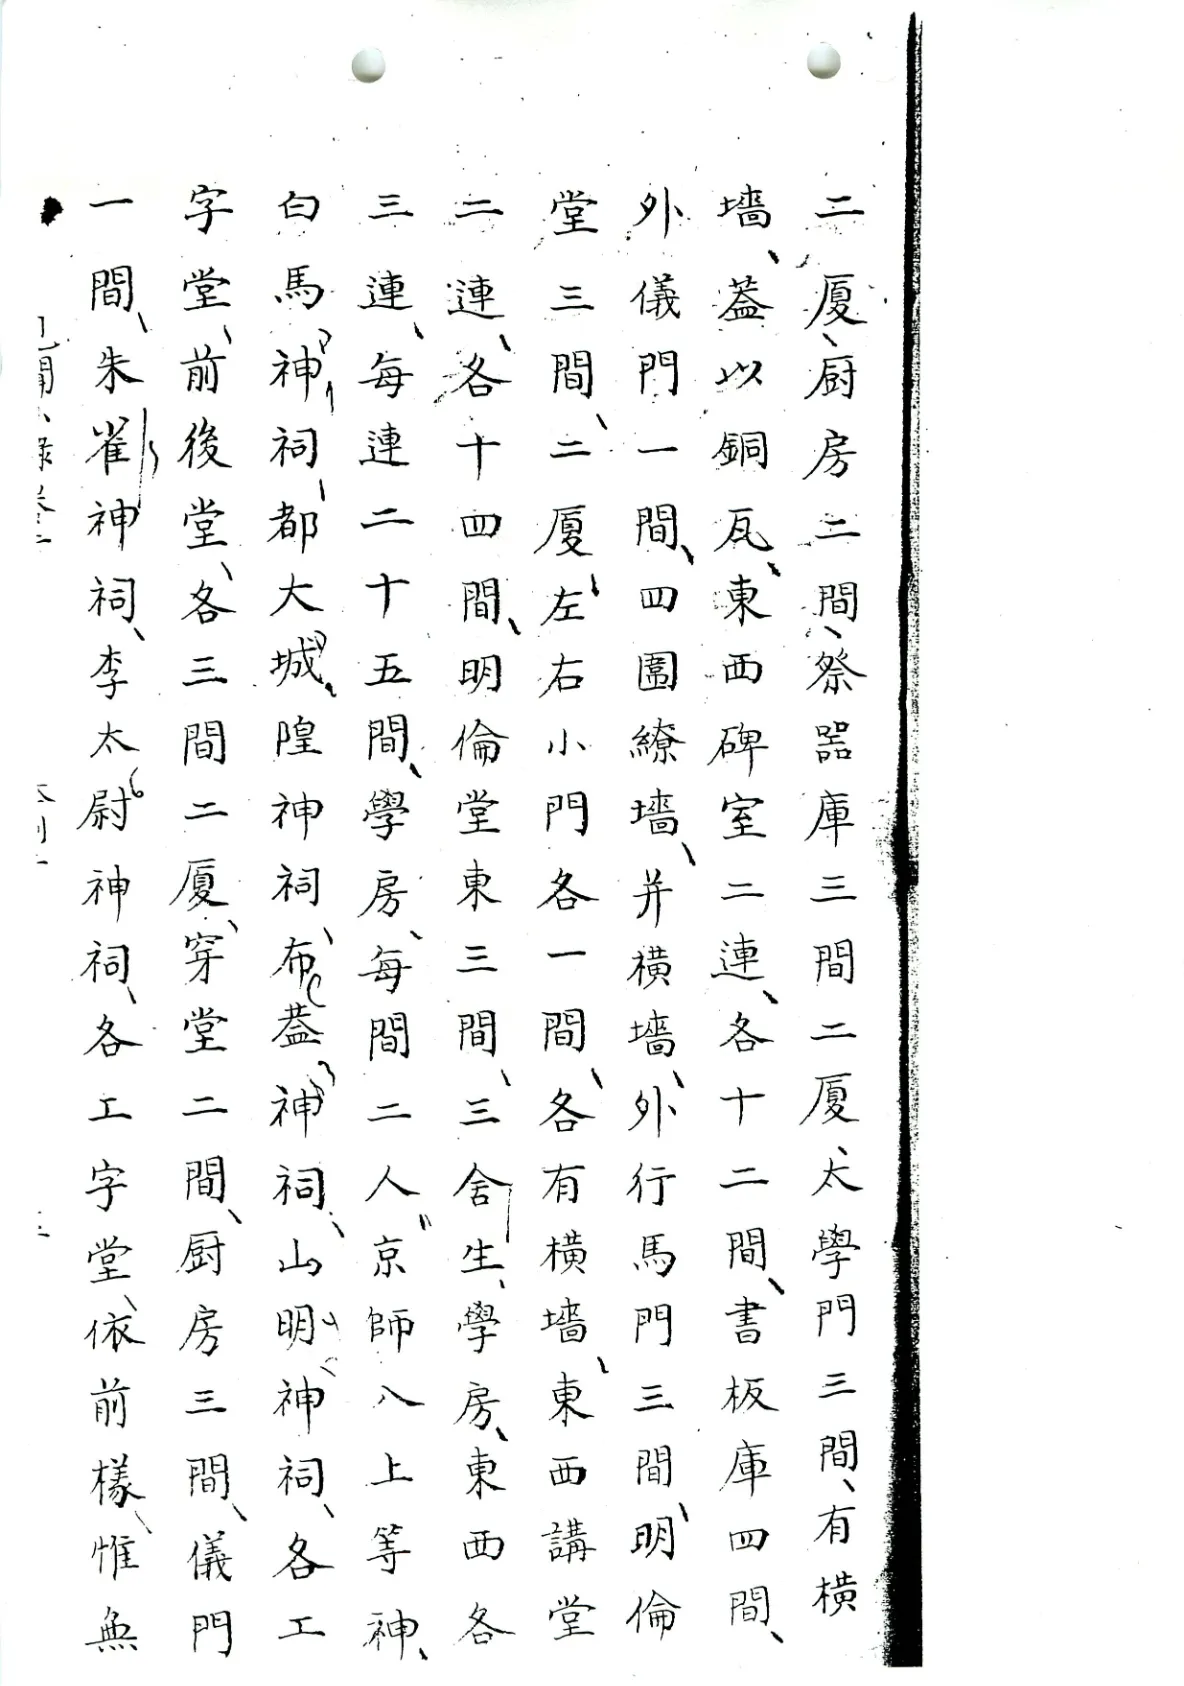 二厦、厨房二間、祭器庫三間二厦、太學門三間、有橫
墻、蓋以銅瓦、東西碑室二連、各十二間、書板庫四間、
外儀門一間、四圍繚墻、并橫墻、外行馬門三間、明倫
堂三間、二厦、左右小門各一間、各有橫墻、東西講堂
二連、各十四間、明倫堂東三間、三舍生、學房、東西各
三連、每連二十五間、學房、每間二人、京師八上等神、
白馬神祠、都大城隍神祠、布蓋神祠、山明神祠、各工
字堂、前後堂、各三間二厦、穿堂二間、厨房三間、儀門
一間、朱雀神祠、李太尉神祠、各工字堂、依前樣、惟無